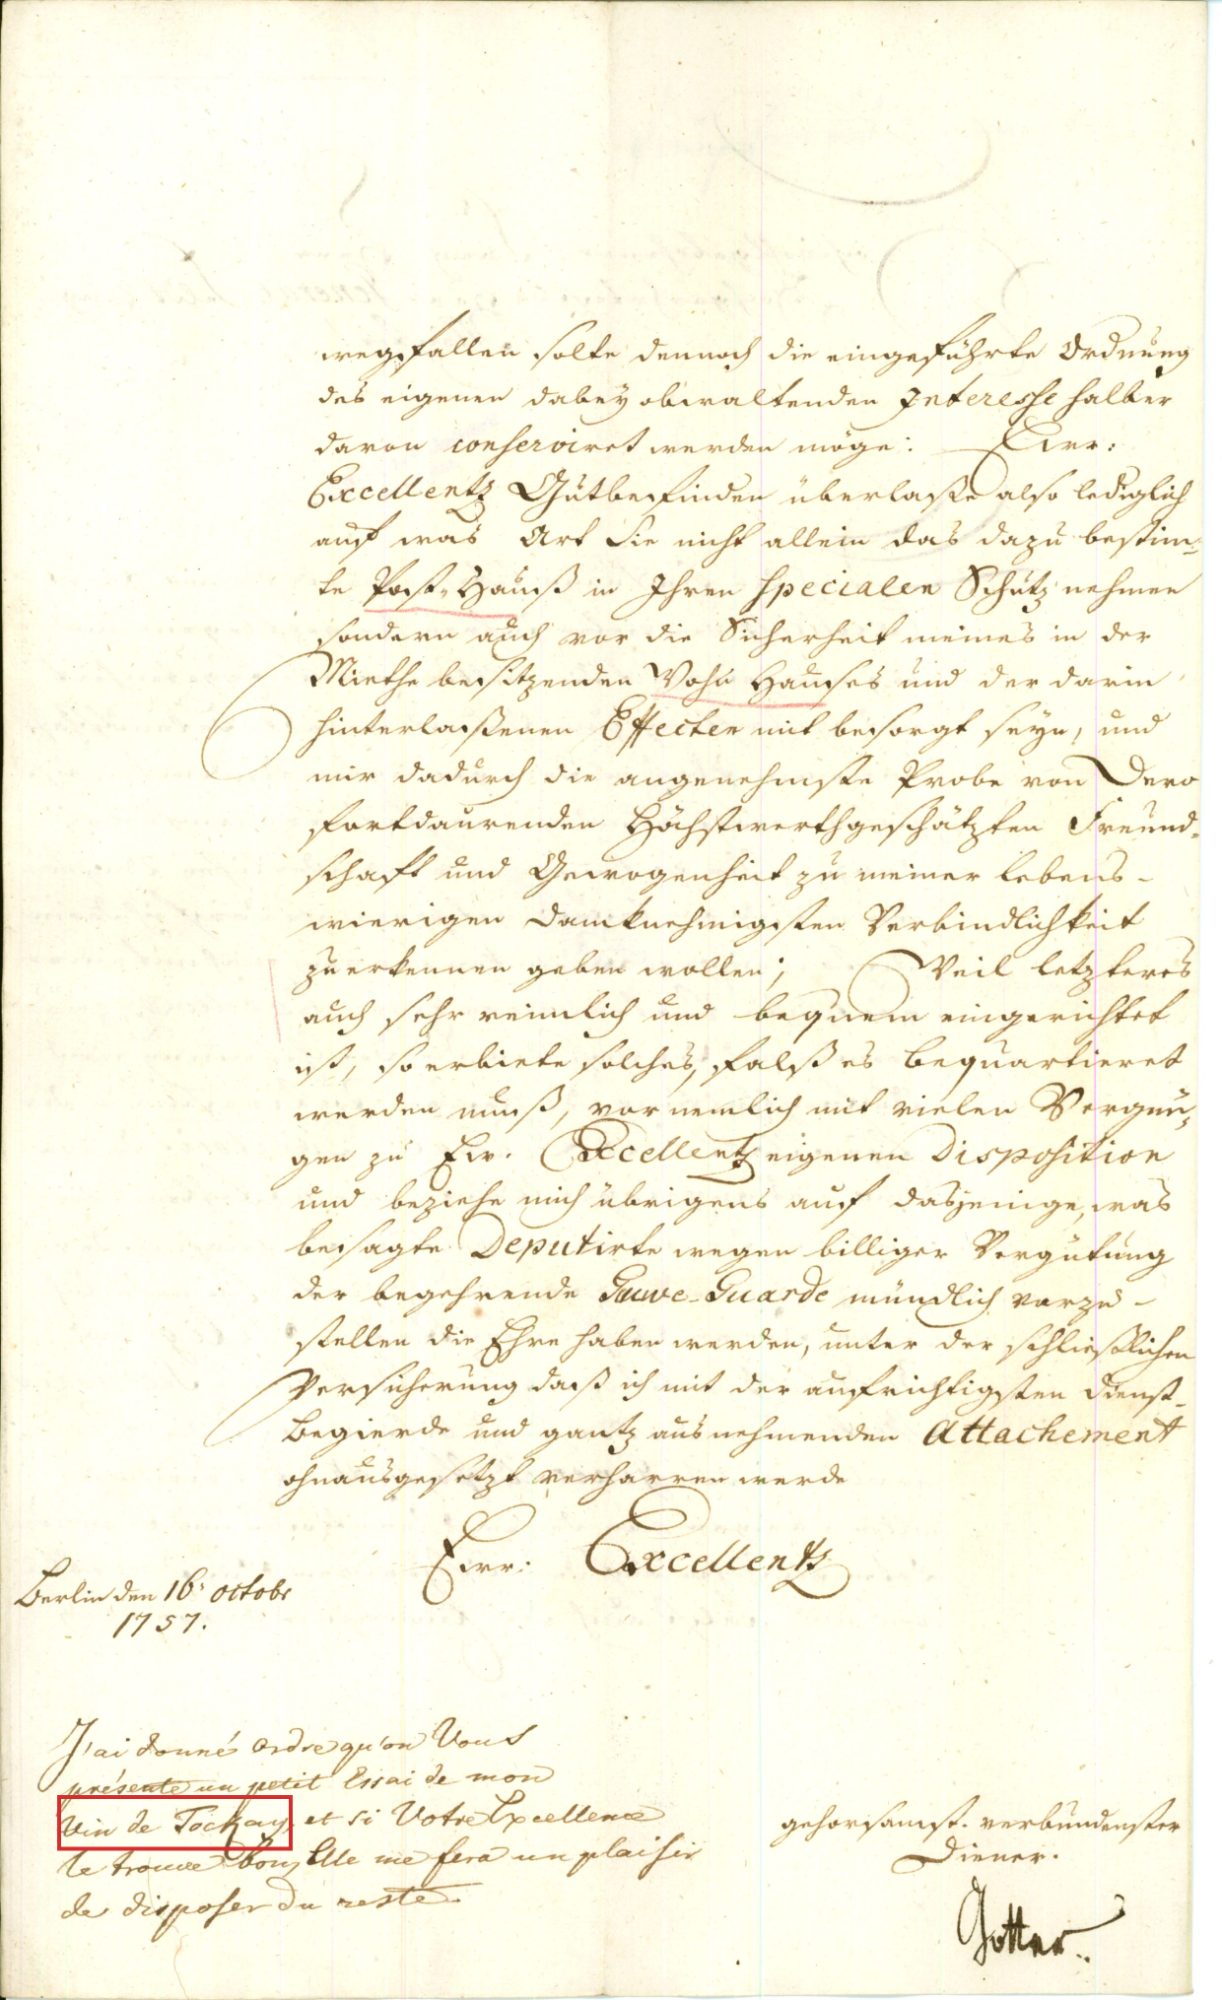 wegfallen solte dennoch die eingeführte Ordnung
des eigenen dabey obwaltenden Interesse halber
davon conserviret werden möge: Ew:
Excellentz Gutbefinden überlaße also lediglich
auf was Art Sie nicht allein das dazu bestim-
te Post-Hauß in Ihren specialen Schutz nehmen
sondern auch vor die Sicherheit meines in der
Miethe besitzenden Wohn Hauses und der darin
hinterlaßenen Effecten mit besorgt seyn, und
mir dadurch die angenehmste Probe von Dero
fortdaurenden Höchstwerthgeschätzten Freund-
schaft und Gewogenheit zu meiner lebens-
wierigen Dancknehmigsten Verbindlichkeit
zuerkennen geben wollen; Weil letzteres
auch sehr reinlich und bequem eingerichtet
ist, so erbiete solches, falß es bequartieret
werden muß, vornemlich mit vielen Vergnü-
gen zu Ew. Excellentz eigenen Disposition
und beziehe mich übrigens auf dasjenige, was
besagte Deputirte wegen billiger Vergütung
der begehrende Guarde mündlich vorzu-
stellen die Ehre haben werden, unter der schließlichen
Versicherung daß ich mit der aufrichtigsten Dienst-
Begierde und gantz ausnehmenden Attachement
ohnausgesetzt verharren werde
Ew: Excellentz
Berlin den 16. octobr
1757.
J'ai donné ordre qu'on Vous
présente un petit Essai de mon
Vin de Tockay, et si Votre Excellence
le trouve bon, Elle me fera un plaisir
de disposer du reste.
gehorsamst. verbundenster
Diener.
Gotter.